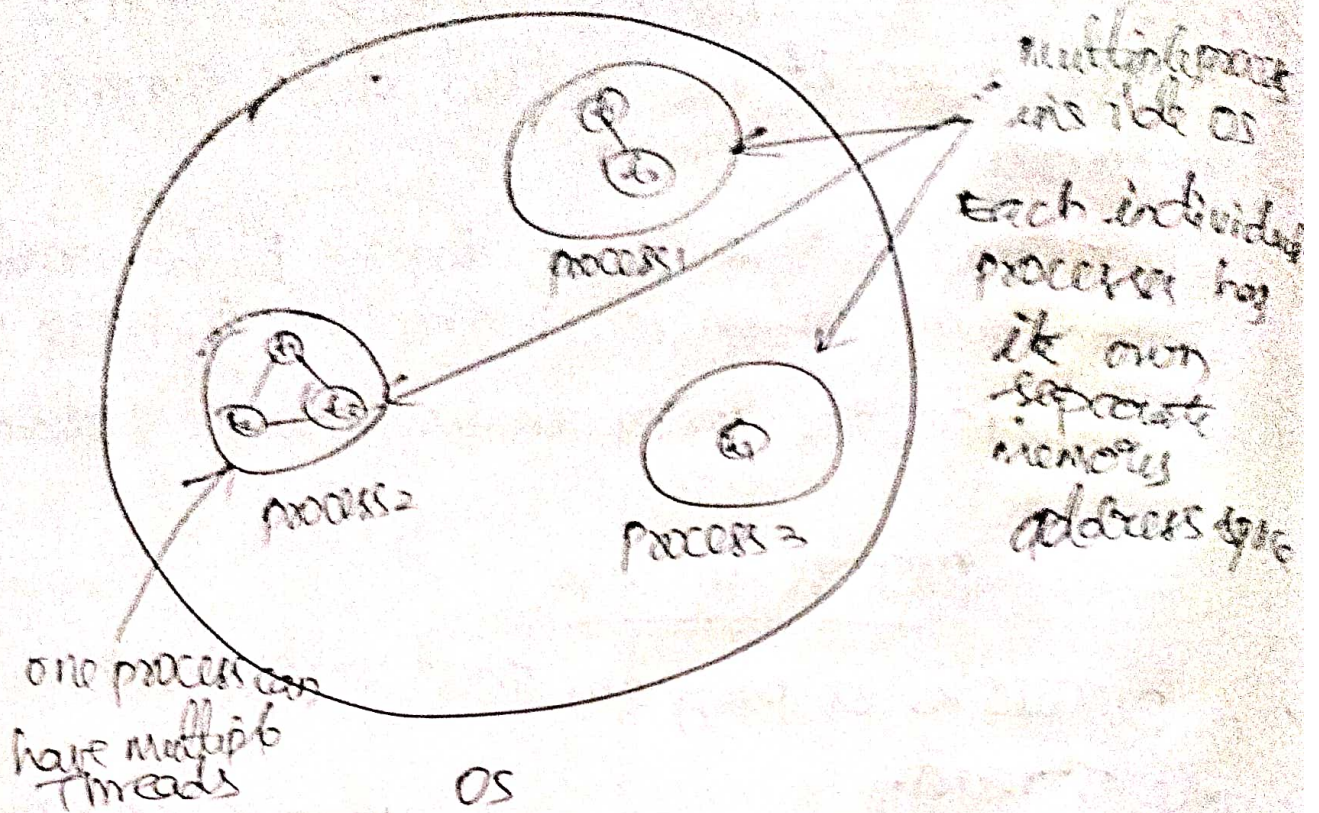 multiple process
inside OS
Each individual
process has
it own
separate
memory
address space
process1
process2
process3
one process can
have multiple
Threads
OS